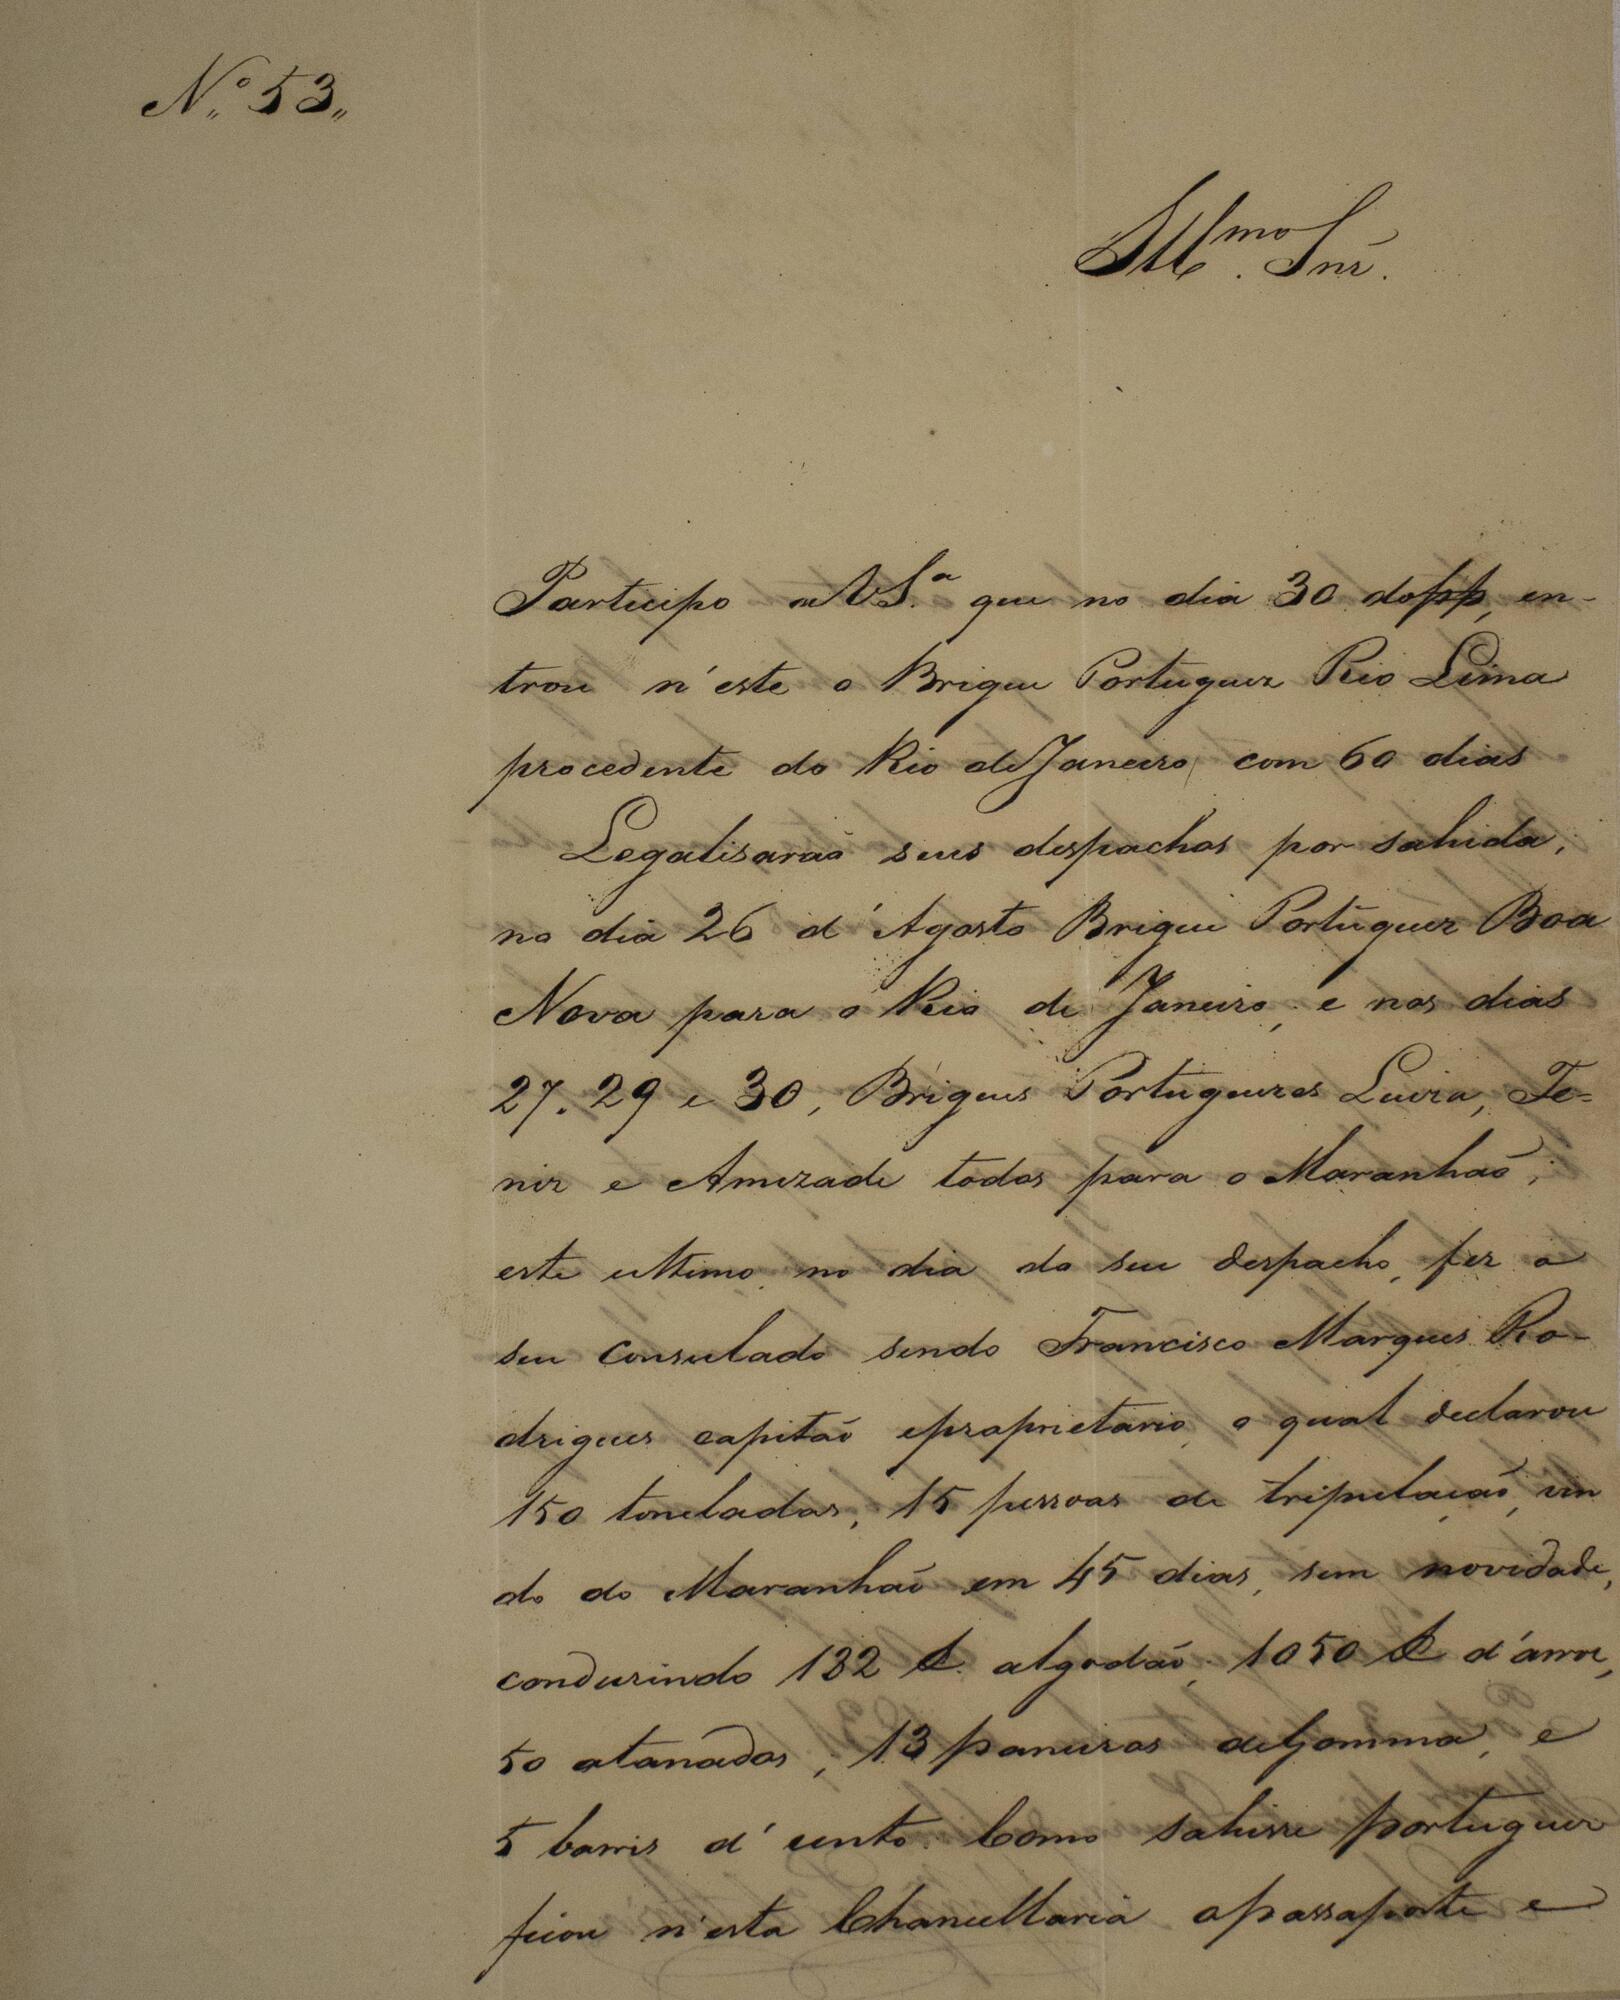 Nº 53
Illmo. Snr.
Participo a V S.ª que no dia 30 do pp, en-
trou n'este o Brigue Portuguez Rio Lima
procedente do Rio de Janeiro, com 60 dias
Legalisaraõ seus despachos por sahida;
no dia 26 d'Agosto Brigue Portuguez Boa
Nova para o Rio de Janeiro; e nos dias
27. 29 e 30, Brigues Portuguezes Luiza, Fe-
niz e Amizade todos para o Maranhaõ;
este ultimo, no dia do seu despacho, fez o
seu consulado sendo Francisco Marques Ro-
drigues capitaõ e proprietario, o qual declarou
150 toneladas, 15 pessoas de tripulaçaõ, vin
do do Maranhaõ em 45 dias, sem novidade,
conduzindo 132 S. algodaõ, 1050 S d'arroz,
50 atanados, 13 paneiros de Gomma, e
5 barris d'unto. Como sahisse portuguez
ficou n'esta Chancellaria o passaporte e